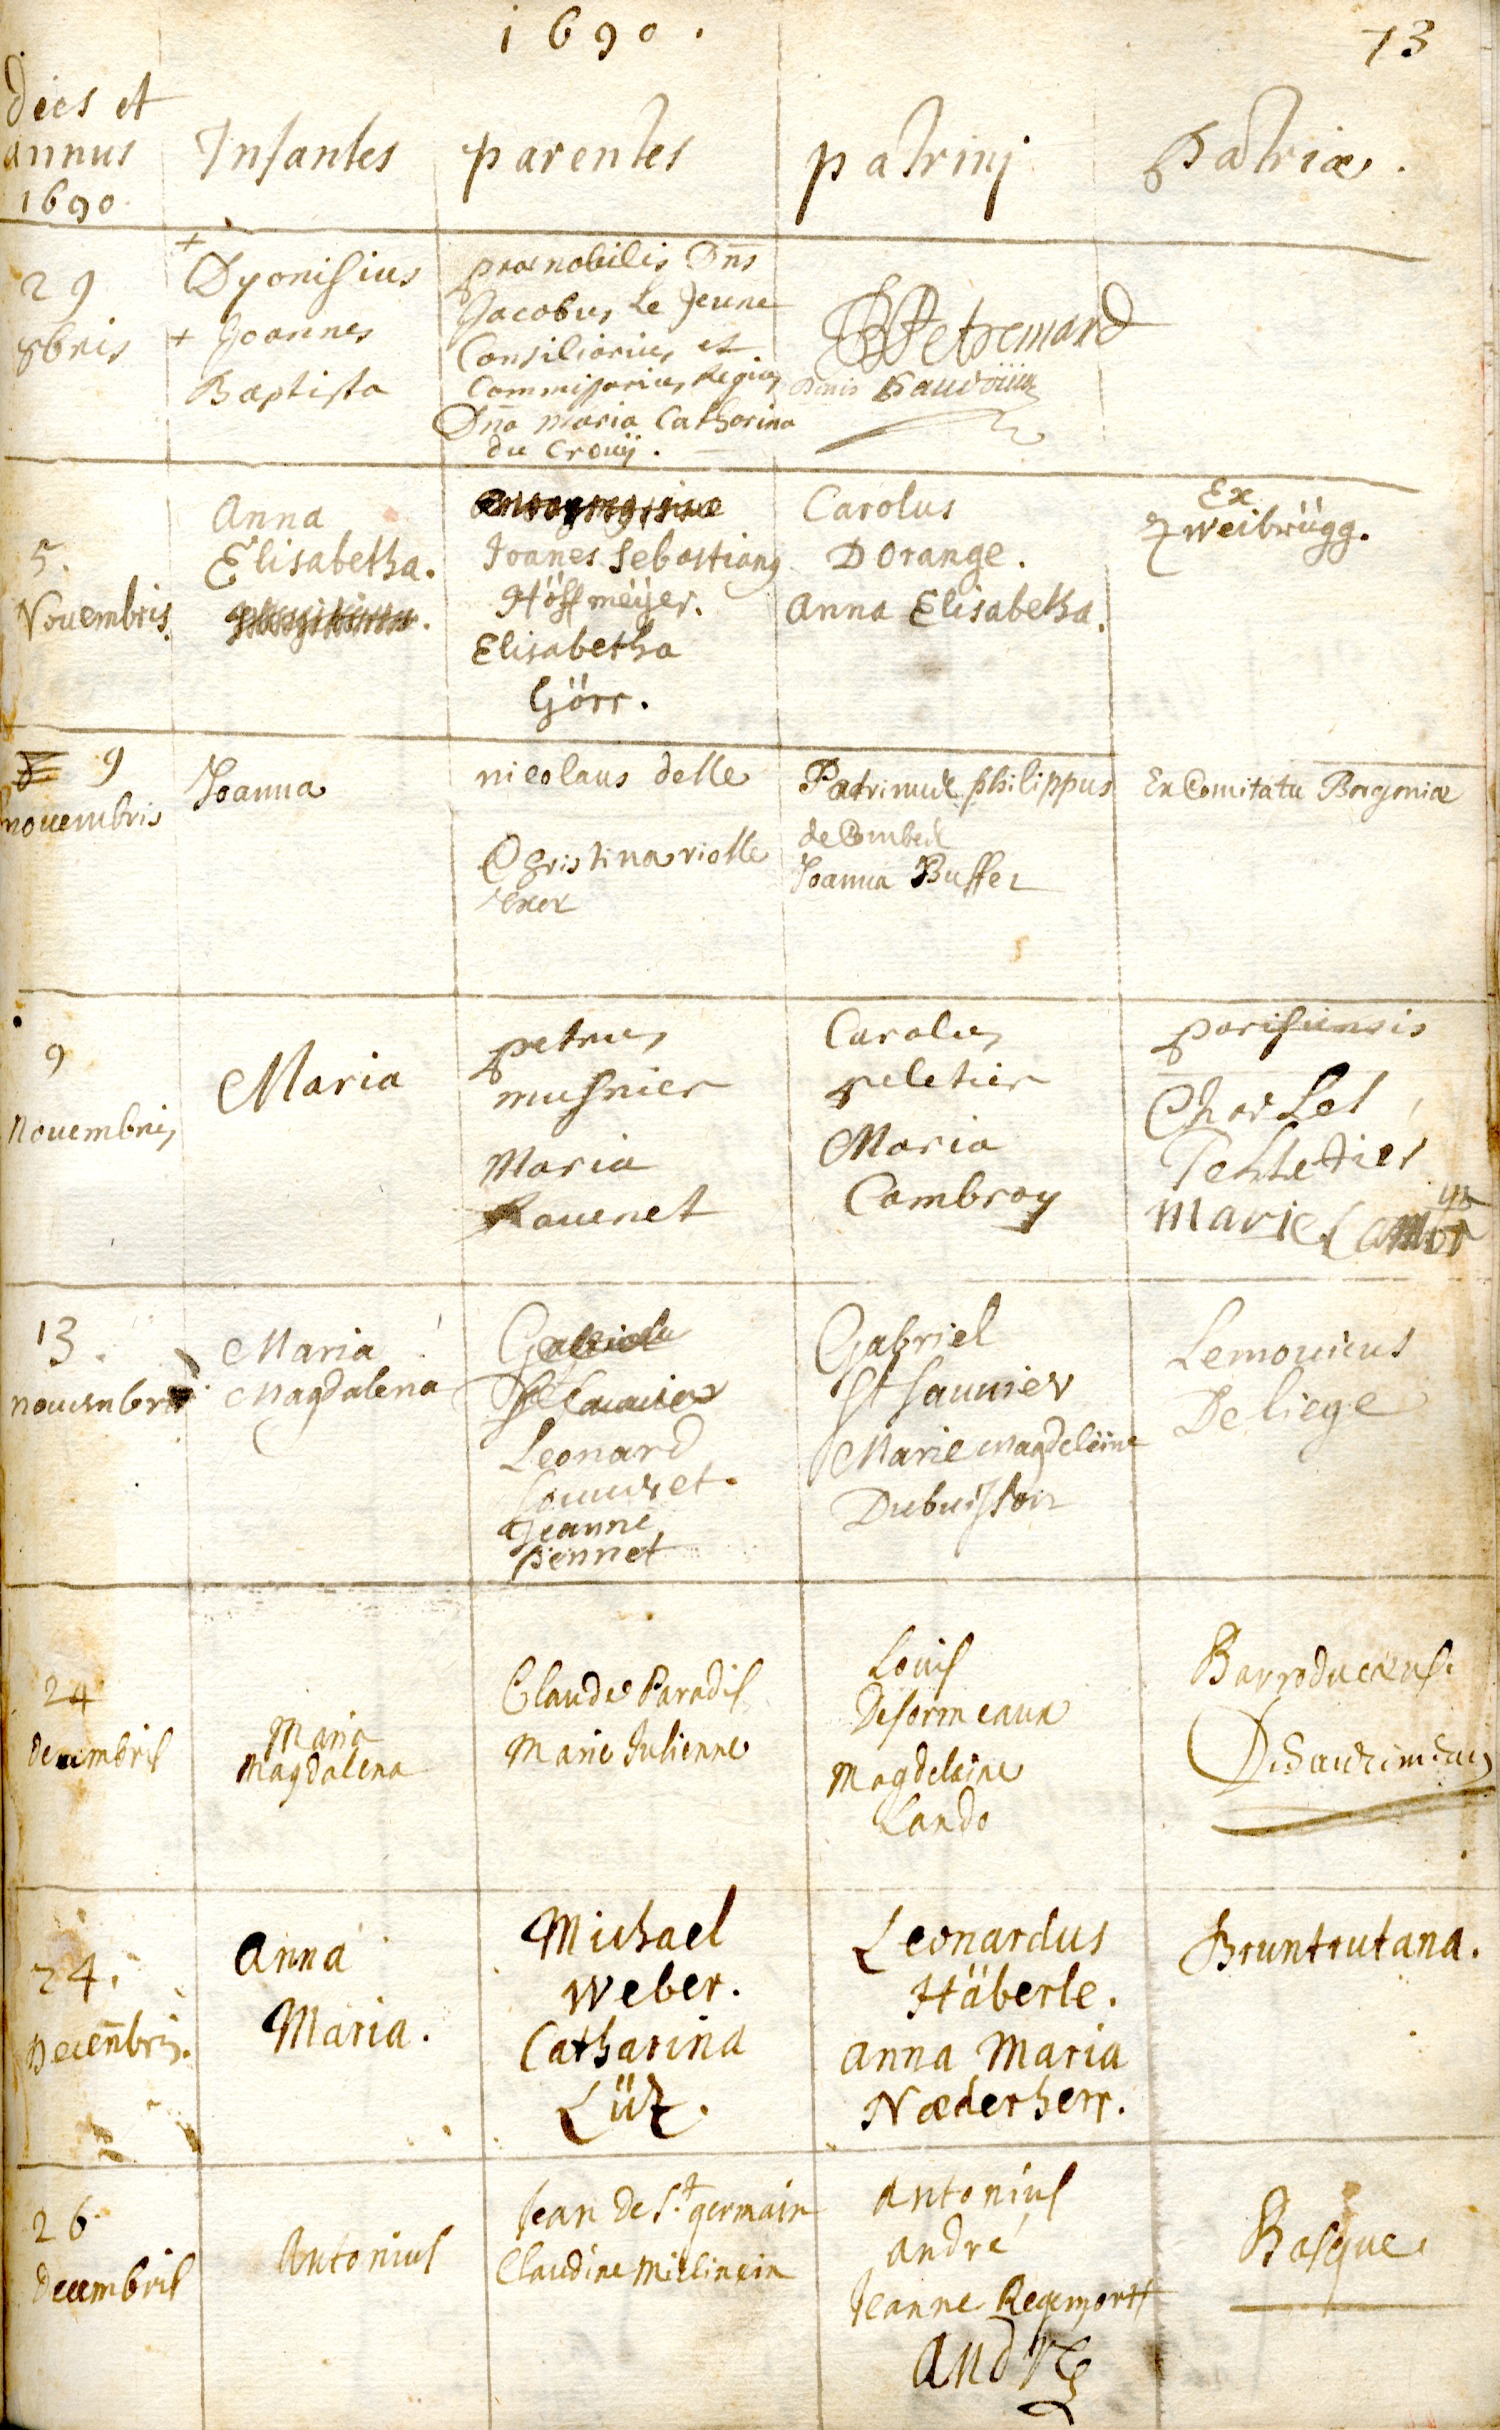 1690.
73
dies et
annus
1690.
Infantes
parentes
patrinj
Patriæ.
29
8bris
+
Dyonisius
+ Joannes
Baptista
prænobilis Dn̄s
Jacobus Le Jeune
Consiliarius et
Commissarius Regius
Dn̄a maria Catharina
du Crouÿ.
Petremand
Denis
5.
Nouembris.
Anna
Elisabetha.
Joanes Sebastianus
Höffmeÿer.
Elisabetha
Görr.
Carolus
D Orange.
Anna Elisabetha.
Ex
Zweibrügg.
9
nouembris
Joanna
nicolaus delle
Christina riotte
Patrinus philippus
Joanna Buffet
Ex Comitatu Borgoniæ
9
Nouembris
Maria
petrus
musnier
Maria
Rauenet
Carolus
peletier
Maria
Cambray
parisiensis
Charles
Pelletier
Marie
13.
nouembris
Maria
Magdalena
Leonard
Jeanne
pennet
Gabriel
St Saunier
Marie Magdeleine
Dubuisson
Lemouicus
De liege
24
decembris
Maria
Magdalena
Claude Paradis
Marie Julienne
Louis
Desormeaux
Magdeleine
Lando
24.
Decem̄bris.
Anna
Maria.
Michael
Weber.
Catharina
Lüz.
Leonardus
Häberle.
Anna Maria
Næderherr.
Bruntrutana.
26
decembris
Antonius
Jean de St. germain
Claudine
Antonius
André
Jeanne Regemortt
André
Basque